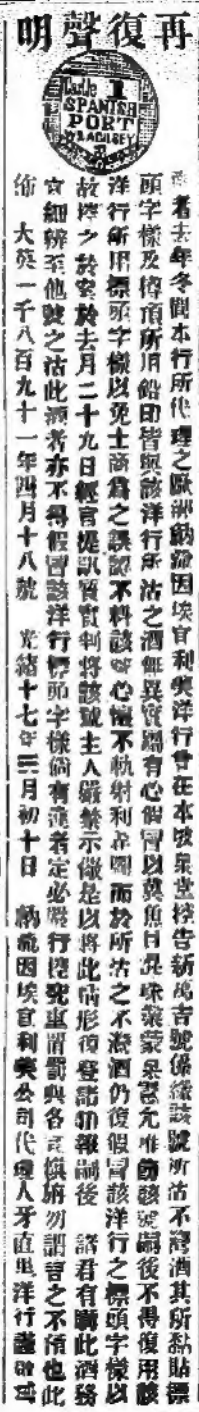 再復聲明
Castle 1
SPANISH
PORT
W. & A. GILBEY
者去年冬間本行所代理之歐郡納 因埃宜利美洋行曾在本坡臬堂控告新萬吉號係緣該號所沽不灣酒其所黏貼標
頭字樣及樽頂所用鉛印皆與該洋行所沽之酒無異實屬有心假冒以冀魚目混珠業蒙臬憲允准飭該號嗣後不得復用該
洋行所用標頭字樣以免士商為之誤認不料該號心懷不軌射利是圖而於所沽之不灣酒仍復假冒該洋行之標頭字樣以
故控之於案於去月二十九日經官提訊質實判將該號主人嚴禁示儆是以將此情形復登諸叻報嗣後 諸君有購此酒務
宜細辨至他號之沽此酒者亦不得假冒該洋行標頭字樣倘有違者定必嚴行控究重請罰與各宜慎旃勿謂言之不預也此
佈 大英一千八百九十一年四月十八號 光緒十七年三月初十日 納 因埃宜利美公司代理人牙直利洋行謹啟